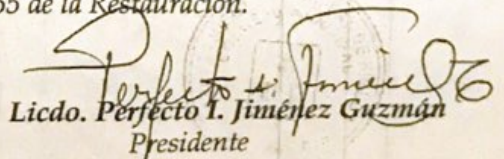 5 de la Restauración.
Perfecto I. Jiménez G
Licdo. Perfecto I. Jiménez Guzmán
Presidente